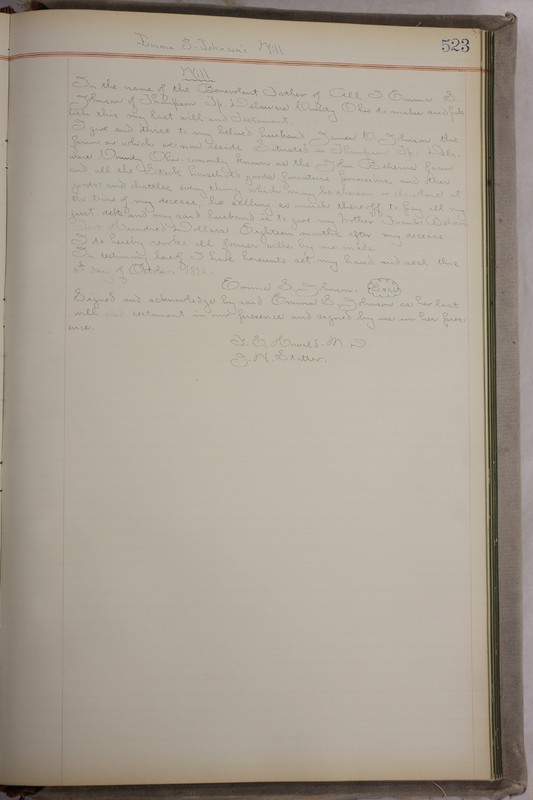 Emma S. Johnson's Will
523
Will
In the name of the Benevolent Father of All I Emma S.
Johnson of Thompson Tp. Delaware County Ohio do make and pub
lish this my last will and testament.
I give and to my beloved husband James W. Johnson the
farm on which we now reside Situated in Thompson Tp. Dela-
ware County Ohio commonly known as the John farm
and all the live stock household goods furniture provisions and other
goods and chattles every thing which may be thereon or thereabout at
the time of my decease, he selling so much there off to pay all my
just debts and my said husband is to give my
Two Hundred Dollars Eighteen months after my decease
I do hereby revoke all former wills by me made
In testimony hereof I have hereunto set my hand and seal this
day of October
Emma S. Johnson. Seal
Signed and acknowledge by said Emma S. Johnson as her last
will and testament in our presence and signed by us in her pres-
ence.
M. D.